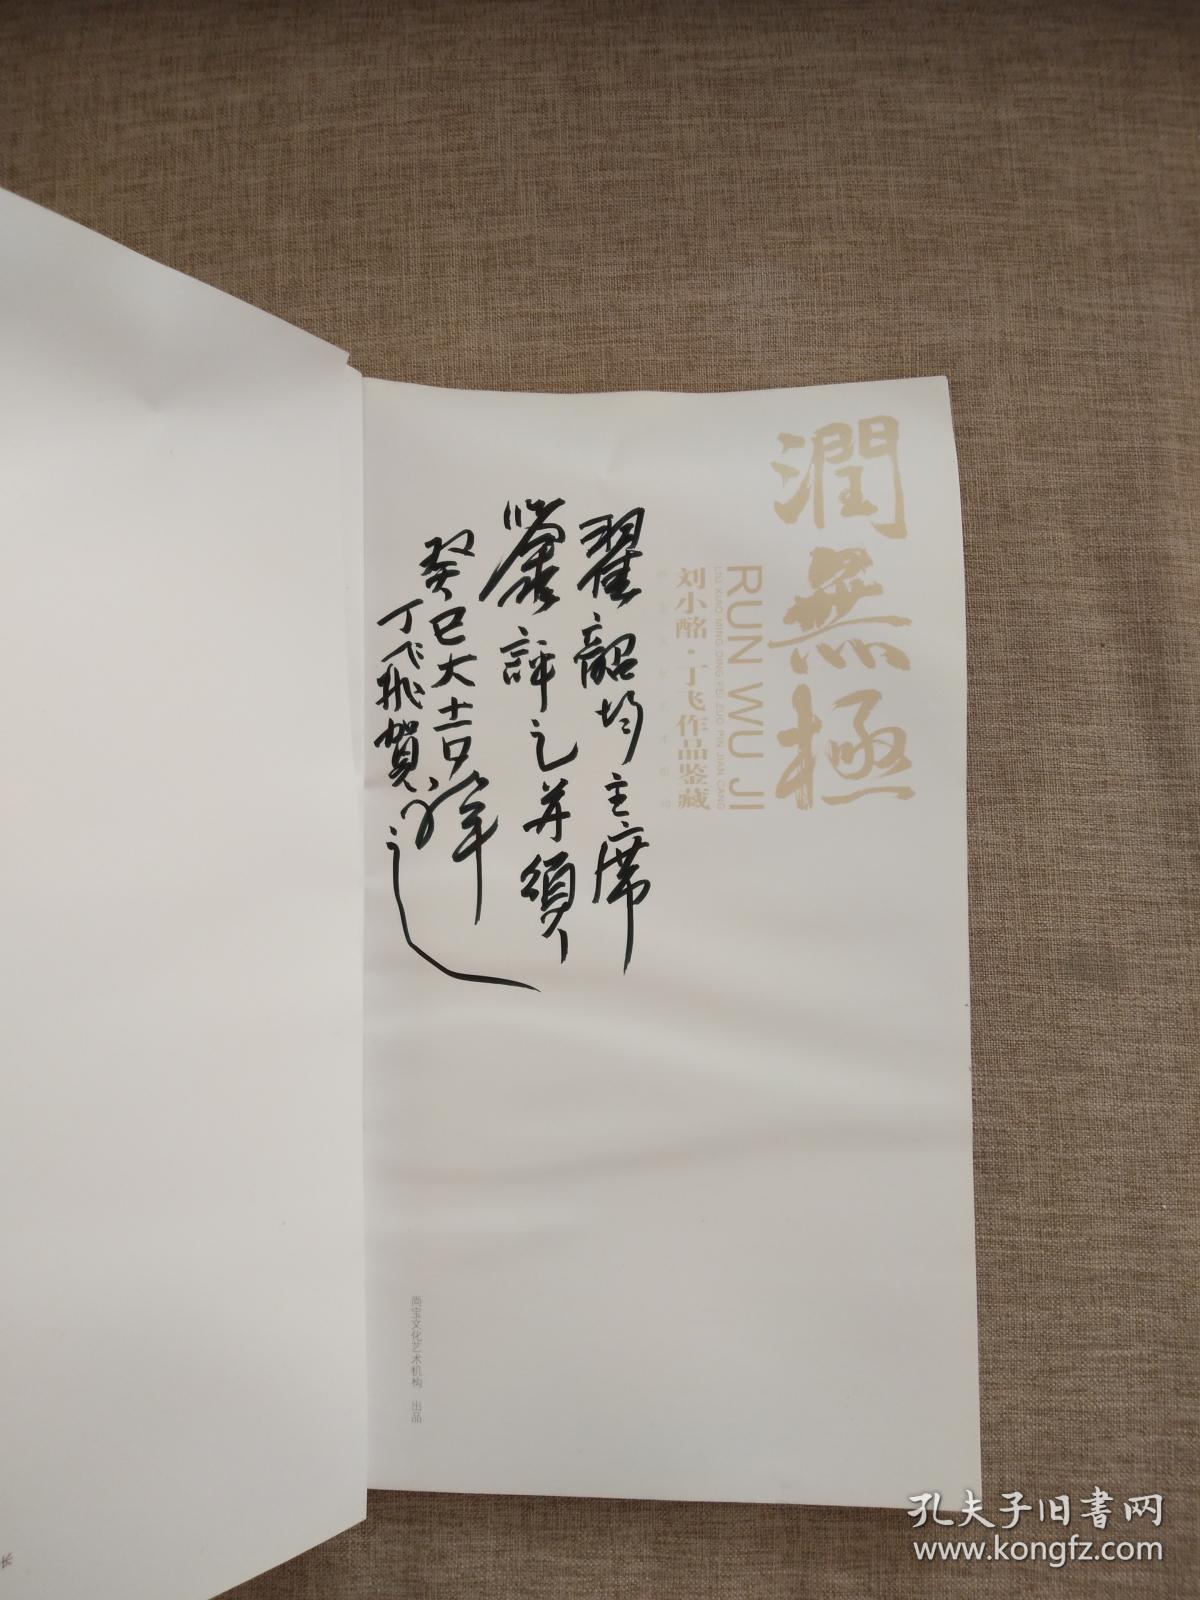 潤無極
RUN WU JI
LIU XIAO MING DING FEI ZUO PIN JIAN CANG
刘小酩·丁飞作品鉴藏
翟韶均主席
鉴評之并頌
癸巳大吉祥
丁飛賀
尚宝文化艺术机构 出品
长
孔夫子旧書网
www.kongfz.com